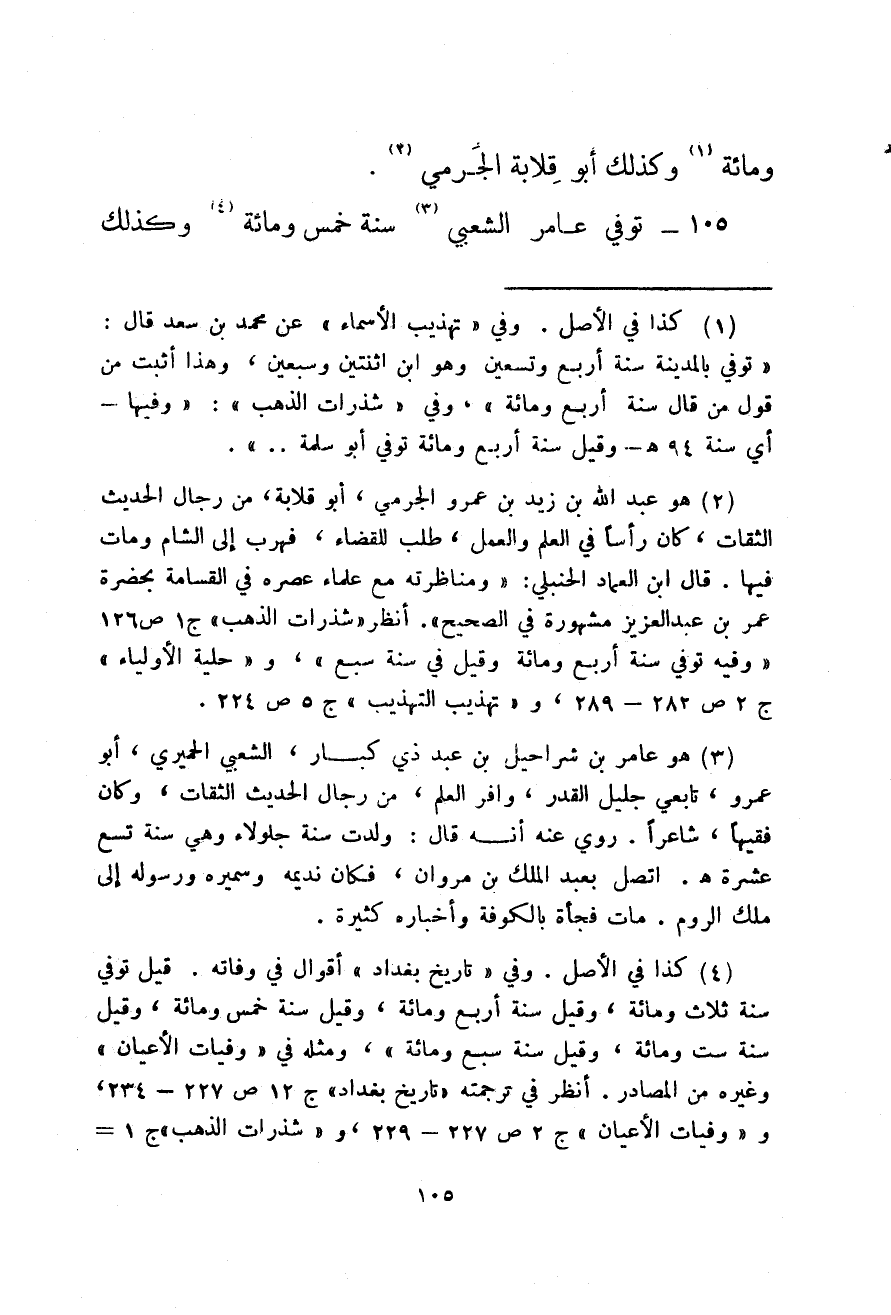 ومائة (١) وكذلك أبو قِلابة الجَرمي (٢) .
١٠٥ ــ توفي عـامر الشعبي (٣) سنة خمس ومائة (٤) وكذلك
(١) كذا في الأصل . وفي « تهذيب الأسماء » عن محمد بن سعد قال :
« توفي بالمدينة سنة أربع وتسعين وهو ابن اثنتين وسبعين ، وهذا أثبت من
قول من قال سنة أربع ومائة » ، وفي « شذرات الذهب » : « وفيها –
أي سنة ٩٤ هـ – وقيل سنة أربع ومائة توفي أبو سلمة .. » .
(٢) هو عبد الله بن زيد بن عمرو الجرمي ، أبو قلابة، من رجال الحديث
الثقات ، كان رأساً في العلم والعمل ، طلب للقضاء ، فهرب إلى الشام ومات
فيها . قال ابن العماد الحنبلي: « ومناظرته مع علماء عصره في القسامة بحضرة
عمر بن عبدالعزيز مشهورة في الصحيح». أنظر«شذرات الذهب» ج١ ص١٢٦
« وفيه توفي سنة أربع ومائة وقيل في سنة سبع » ، و « حلية الأولياء »
ج ٢ ص ٢٨٢ – ٢٨٩ ، و « تهذيب التهذيب » ج ٥ ص ٢٢٤ .
(٣) هو عامر بن شراحيل بن عبد ذي كبـــار ، الشعبي الحميري ، أبو
عمرو ، تابعي جليل القدر ، وافر العلم ، من رجال الحديث الثقات ، وكان
فقيهاً ، شاعراً . روي عنه أنـــه قال : ولدت سنة جلولاء وهي سنة تسع
عشرة هـ . اتصل بعبد الملك بن مروان ، فكان نديمه وسميره ورسوله إلى
ملك الروم . مات فجأة بالكوفة وأخباره كثيرة .
(٤) كذا في الأصل . وفي « تاريخ بغداد » أقوال في وفاته . قيل توفي
سنة ثلاث ومائة ، وقيل سنة أربع ومائة ، وقيل سنة خمس ومائة ، وقيل
سنة ست ومائة ، وقيل سنة سبع ومائة » ، ومثله في « وفيات الأعيان »
وغيره من المصادر . أنظر في ترجمته «تاريخ بغداد» ج ١٢ ص ٢٢٧ – ٢٣٤،
و « وفيات الأعيان » ج ٢ ص ٢٢٧ – ٢٢٩ ،و « شذرات الذهب»ج ١ =
١٠٥